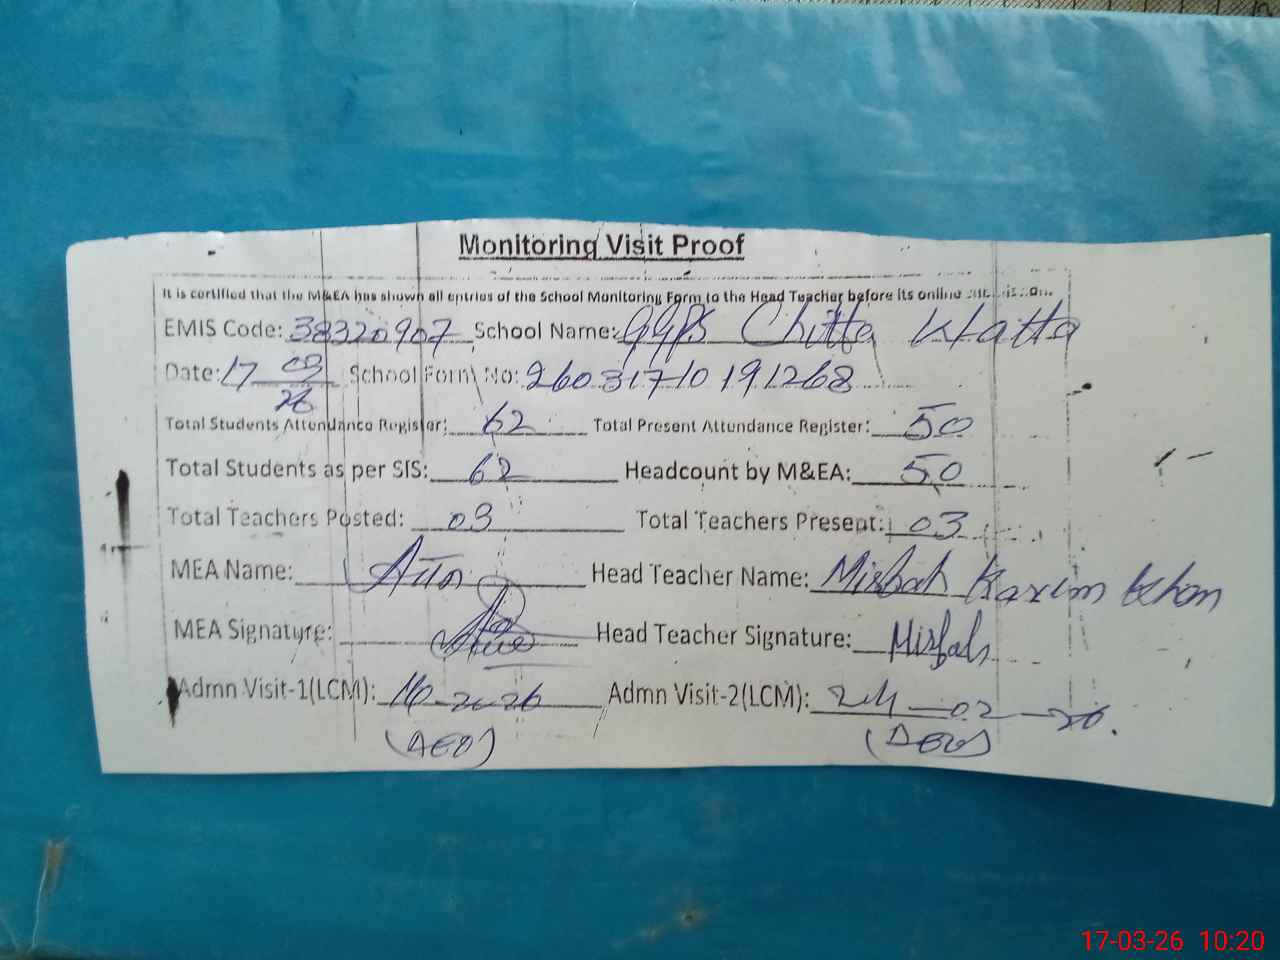 Monitoring Visit Proof
It is certified that the M&EA has shown all entries of the School Monitoring Form to the Head Teacher before its online
EMIS Code: 38320907 School Name: GGPS Chitta Khatta
Date: 17 03 26 School Form No: 26031710191268
Total Students Attendance Register: 62 Total Present Attendance Register: 50
Total Students as per SIS: 62 Headcount by M&EA: 50
Total Teachers Posted: 03 Total Teachers Present: 03
MEA Name: Head Teacher Name: Misbah Karim Khan
MEA Signature: Head Teacher Signature: Misbah
Admn Visit-1(LCM): 10-2-26 Admn Visit-2(LCM): 24-02-26.
(AEO) (AEO)
17-03-26 10:20